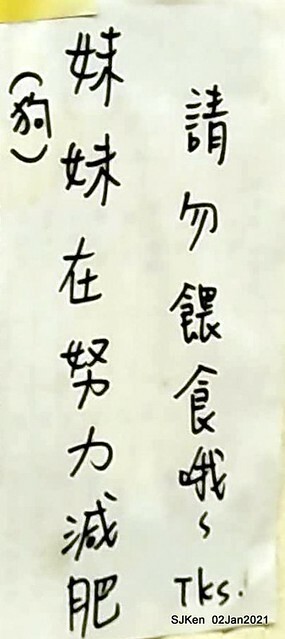 請勿餵食哦~ Tks.
妹妹在努力減肥
(狗)
SJKen 02Jan2021